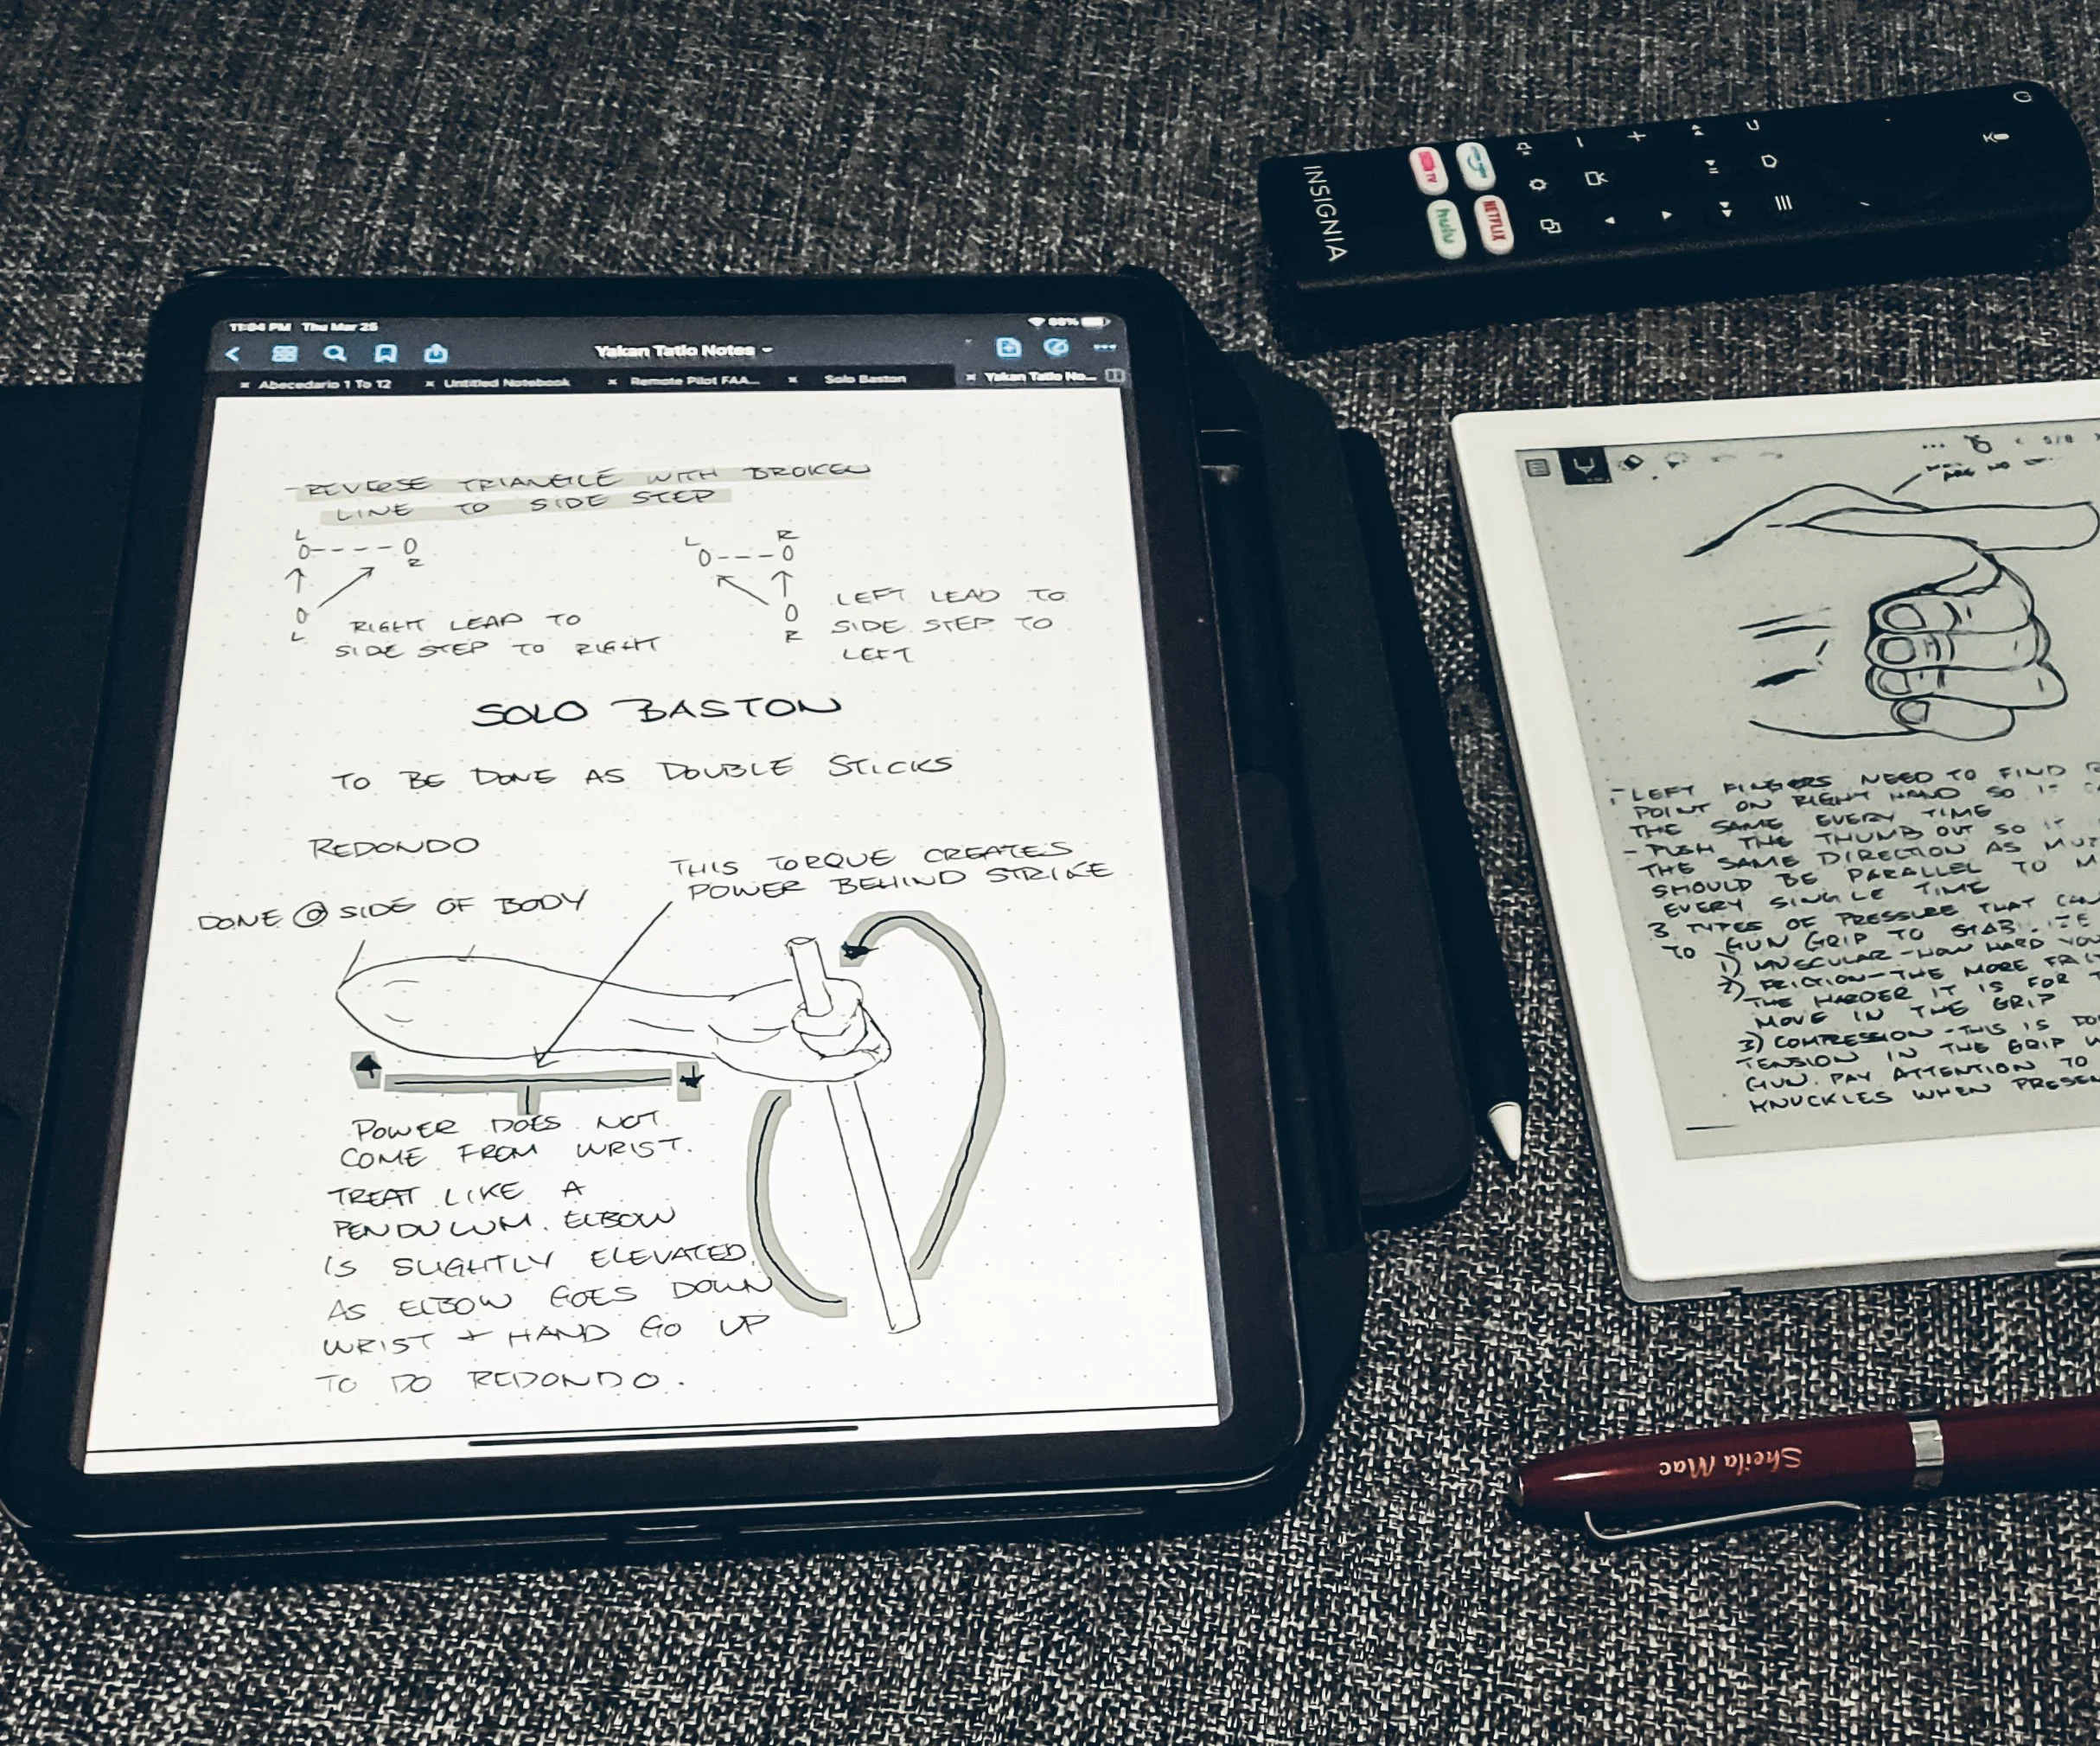 11:04 PM Thu Mar 25
Yakan Tatlo Notes
Abecedario 1 To 12
Untitled Notebook
Remote Pilot FAA...
Solo Baston
Yakan Tatlo No...
- REVERSE TRIANGLE WITH BROKEN
LINE TO SIDE STEP
L
O----O
R
O
L
RIGHT LEAD TO
SIDE STEP TO RIGHT
L R
O---O
O
R
LEFT LEAD TO
SIDE STEP TO
LEFT
SOLO BASTON
TO BE DONE AS DOUBLE STICKS
REDONDO
THIS TORQUE CREATES
POWER BEHIND STRIKE
DONE @ SIDE OF BODY
POWER DOES NOT
COME FROM WRIST.
TREAT LIKE A
PENDULUM. ELBOW
IS SLIGHTLY ELEVATED.
AS ELBOW GOES DOWN
WRIST + HAND GO UP
TO DO REDONDO.
INSIGNIA
hulu
NETFLIX
5/8
- LEFT FINGERS NEED TO FIND
POINT ON RIGHT HAND SO IT
THE SAME EVERY TIME
- PUSH THE THUMB OUT SO IT
THE SAME DIRECTION AS
SHOULD BE PARALLEL TO
EVERY SINGLE TIME
3 TYPES OF PRESSURE THAT CAN
TO GUN GRIP TO STAB.
1) MUSCULAR - HOW HARD YOU
2) FRICTION - THE MORE
THE HARDER IT IS FOR
MOVE IN THE GRIP
3) COMPRESSION - THIS IS
TENSION IN THE GRIP
GUN. PAY ATTENTION TO
KNUCKLES WHEN
Sheila Mac